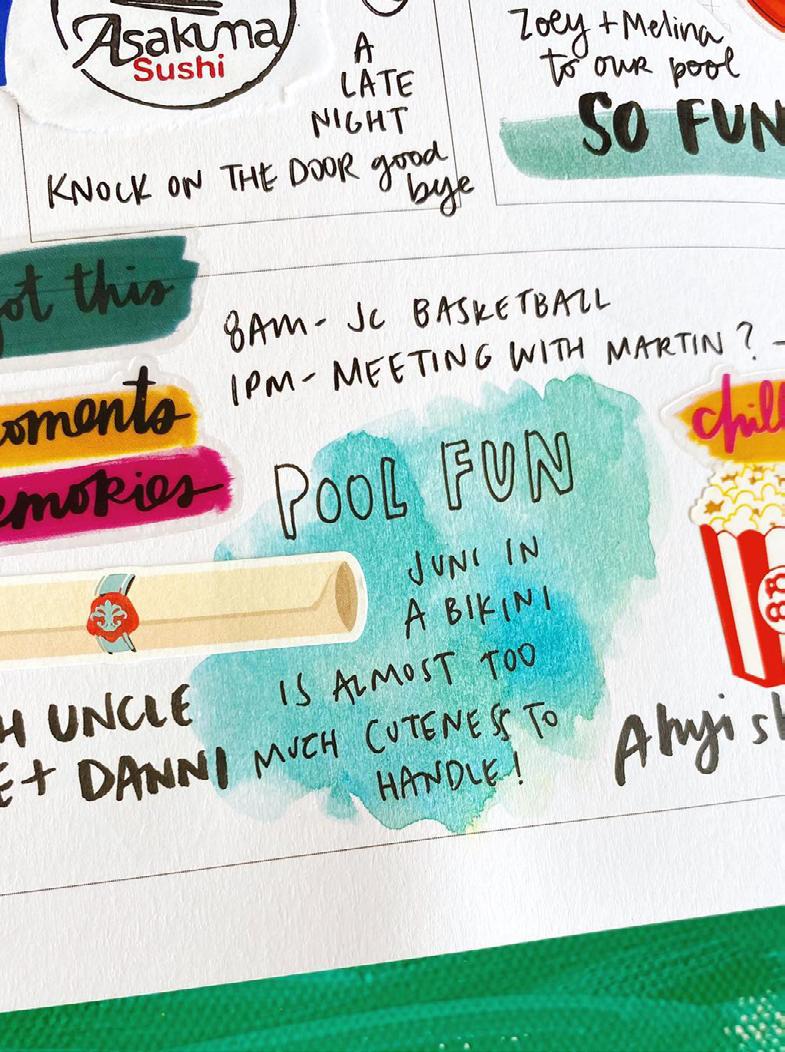 Asakuma
Sushi
A
LATE
NIGHT
KNOCK ON THE DOOR good
bye
Zoey + Melina
to our pool
SO FUN
got this
moments
memories
8AM - JC BASKETBALL
1PM - MEETING WITH MARTIN? -
POOL FUN
JUNI IN
A BIKINI
IS ALMOST TOO
MUCH CUTENESS TO
HANDLE!
chill
H UNCLE
E + DANNI